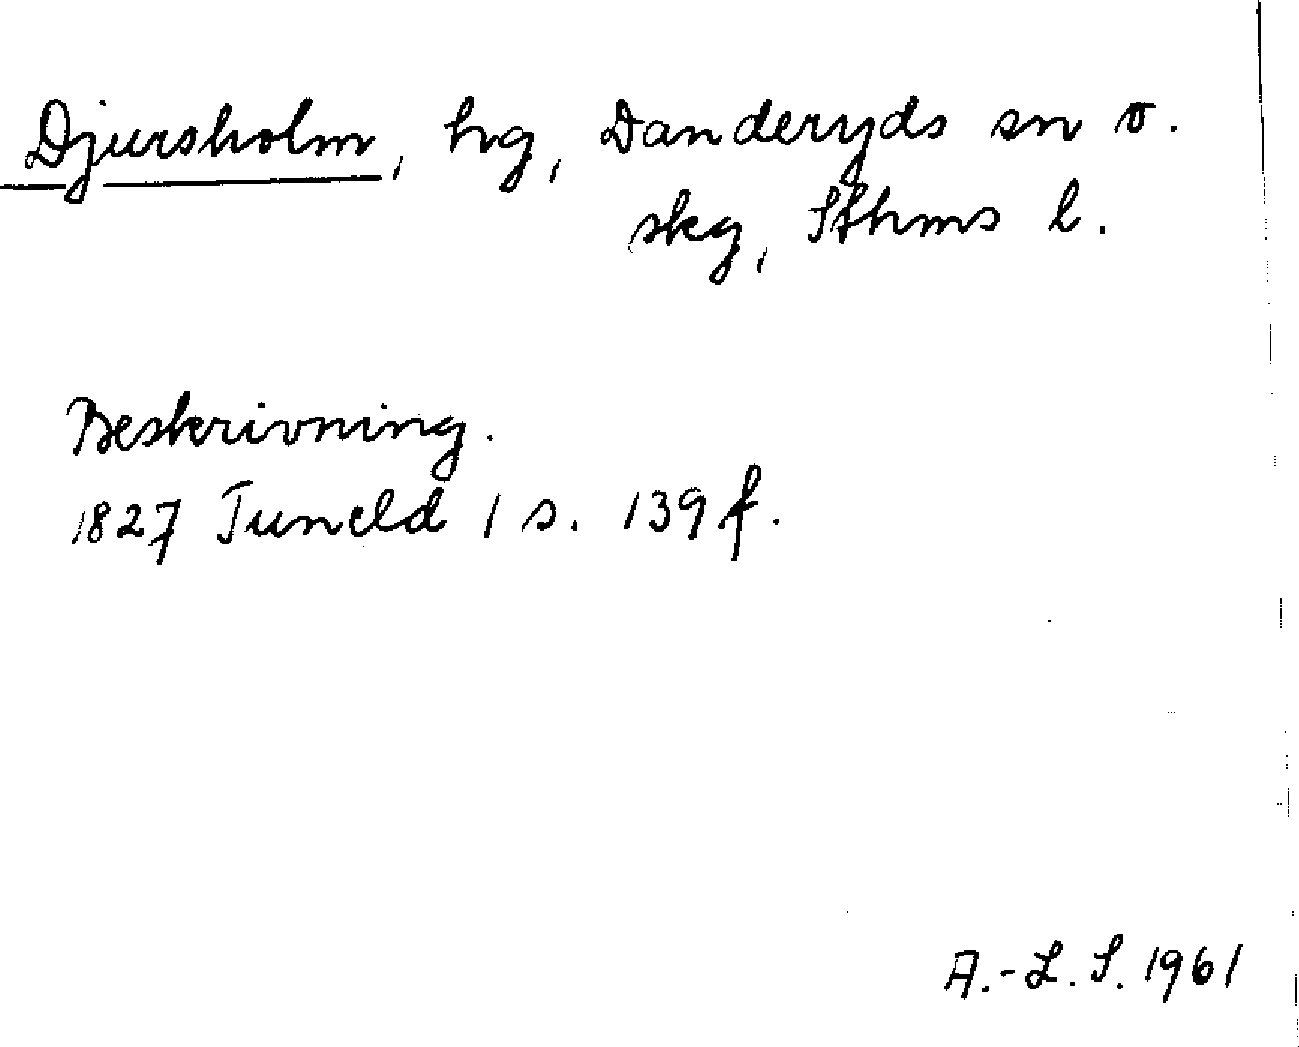 Djursholm, hg, Danderyds sn o.
skg, Sthms l.
Beskrivning.
1827 Tuneld 1 s. 139 f.
A.-L. S. 1961